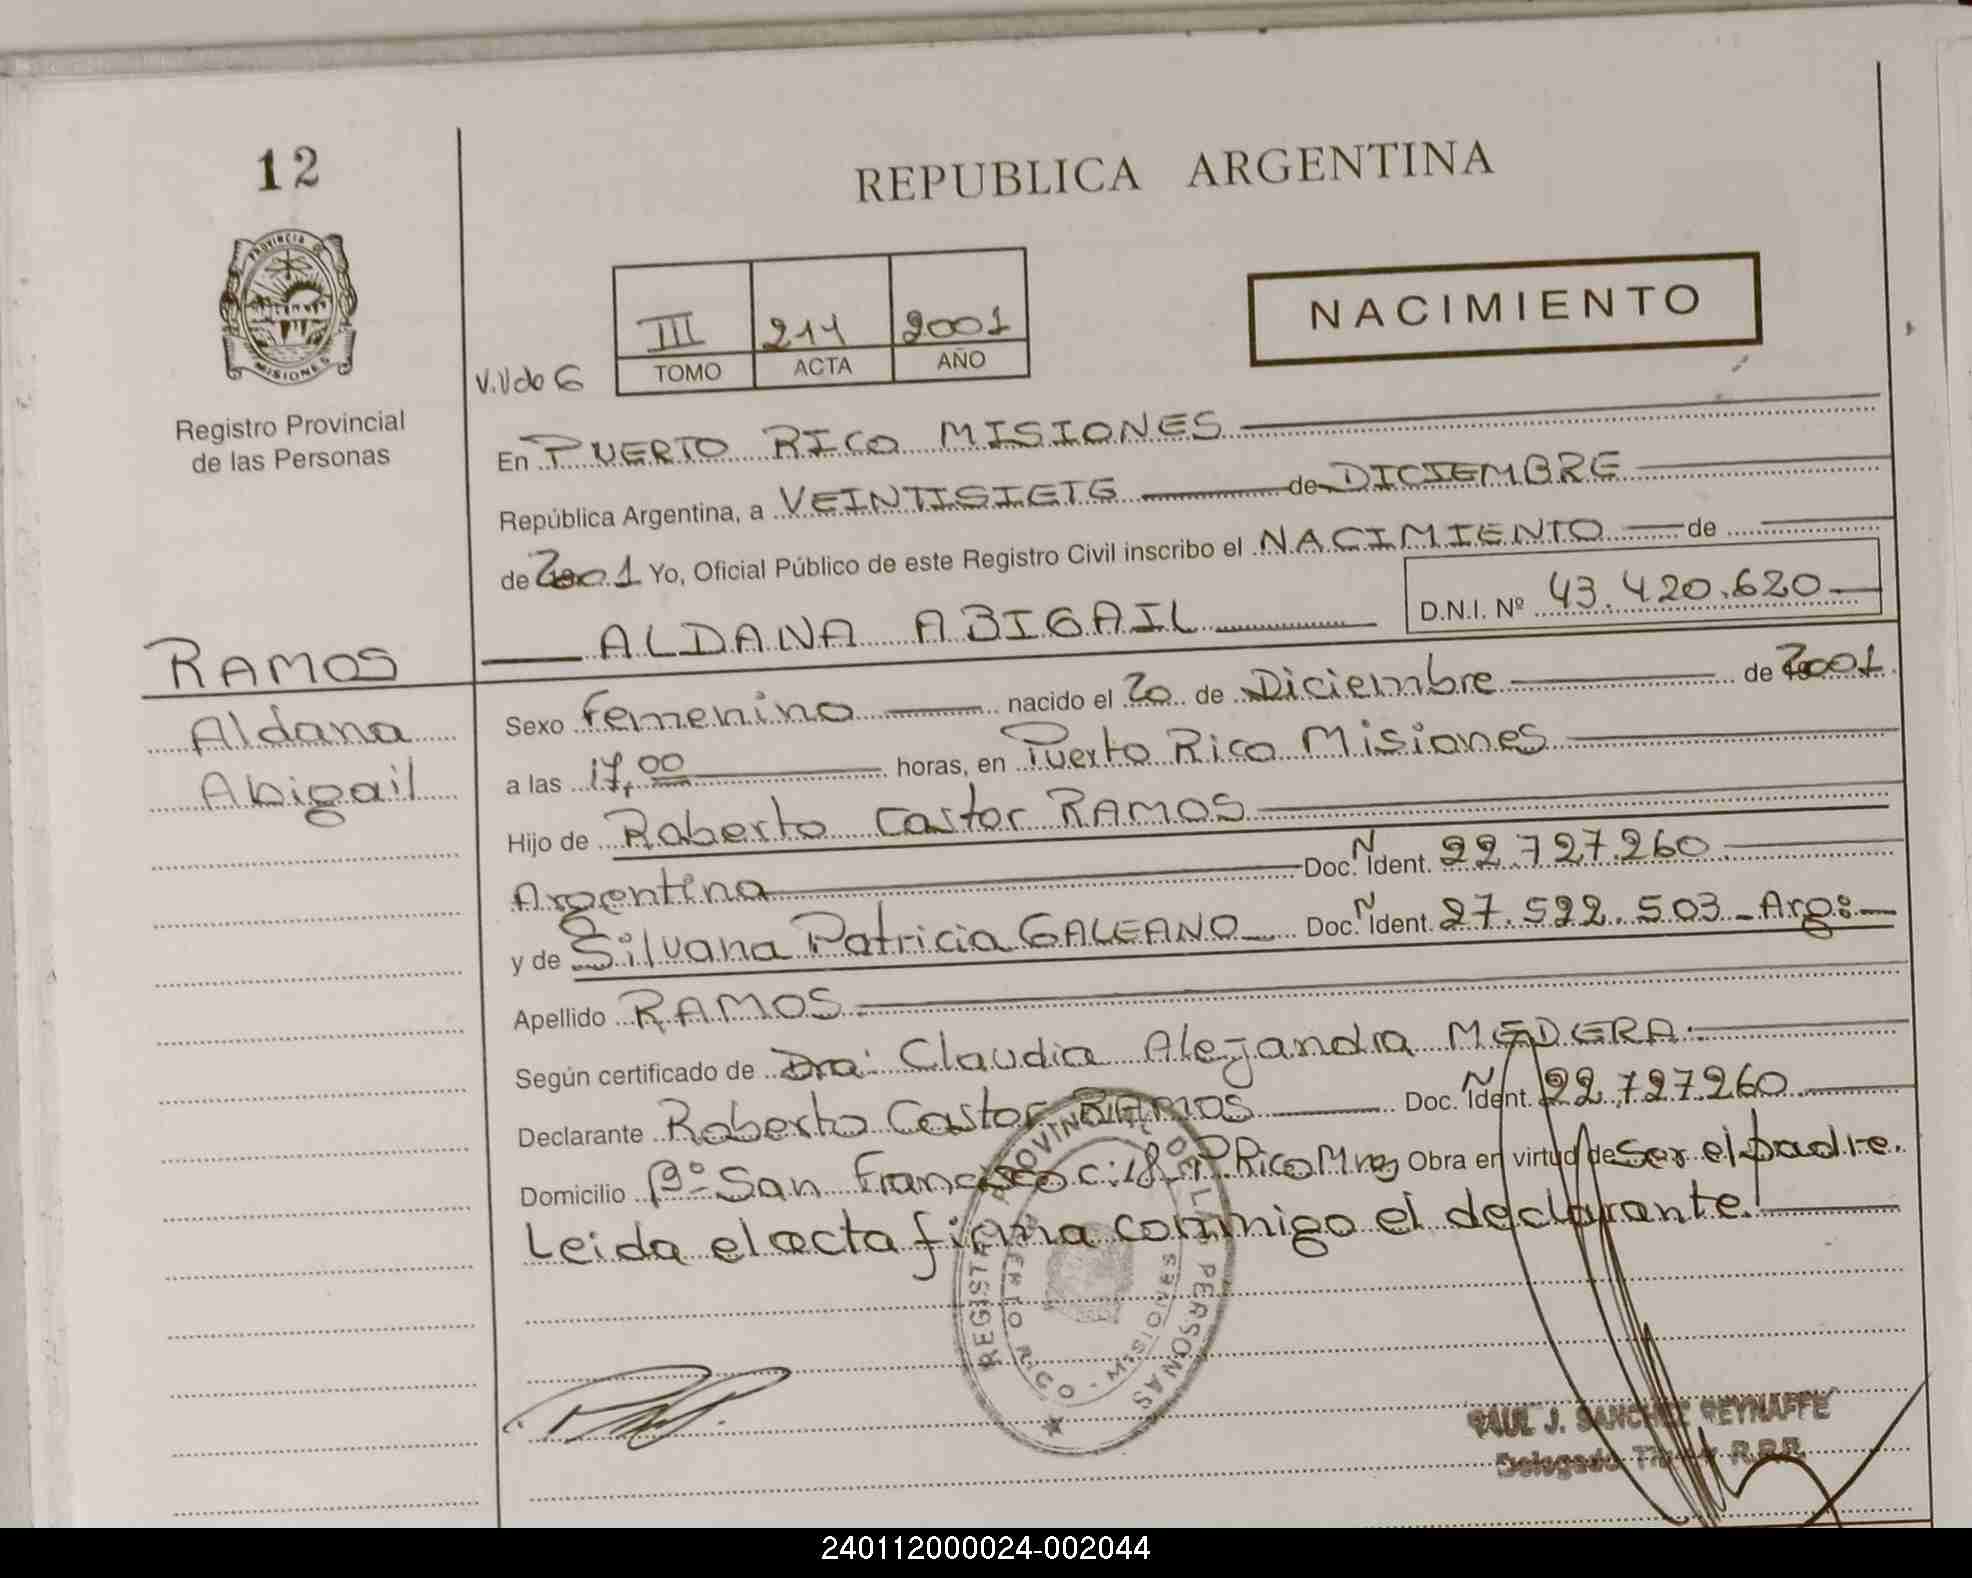 12
REPUBLICA ARGENTINA
PROVINCIA D
MISIONES
Registro Provincial
de las Personas
III 211 2001
TOMO ACTA AÑO
NACIMIENTO
En PUERTO RICO MISIONES
República Argentina, a VEINTISIETE de DICIEMBRE
de 2001 Yo, Oficial Público de este Registro Civil inscribo el NACIMIENTO de
ALDANA ABIGAIL D.N.I. Nº 43.420.620
RAMOS
Aldana
Abigail
Sexo Femenino nacido el 20 de Diciembre de 2001
a las 17,00 horas, en Puerto Rico Misiones
Hijo de Roberto Castor RAMOS
Argentina Doc. N Ident. 22.727.260
y de Silvana Patricia GALEANO Doc. N Ident. 27.522.503 - Arg:
Apellido RAMOS
Según certificado de Dra: Claudia Alejandra MEDERA.
Declarante Roberto Castor RAMOS Doc. N Ident. 22.727.260
Domicilio Bº San Francisco c:18 P Rico Mnes Obra en virtud de ser el padre.
Leida el acta firma conmigo el declarante.
REGISTRO PROVINCIAL DE LAS PERSONAS
PUERTO RICO - MISIONES
RAUL J. SANCHEZ REYNAFFE
Delegado Titular R.P.P.
240112000024-002044